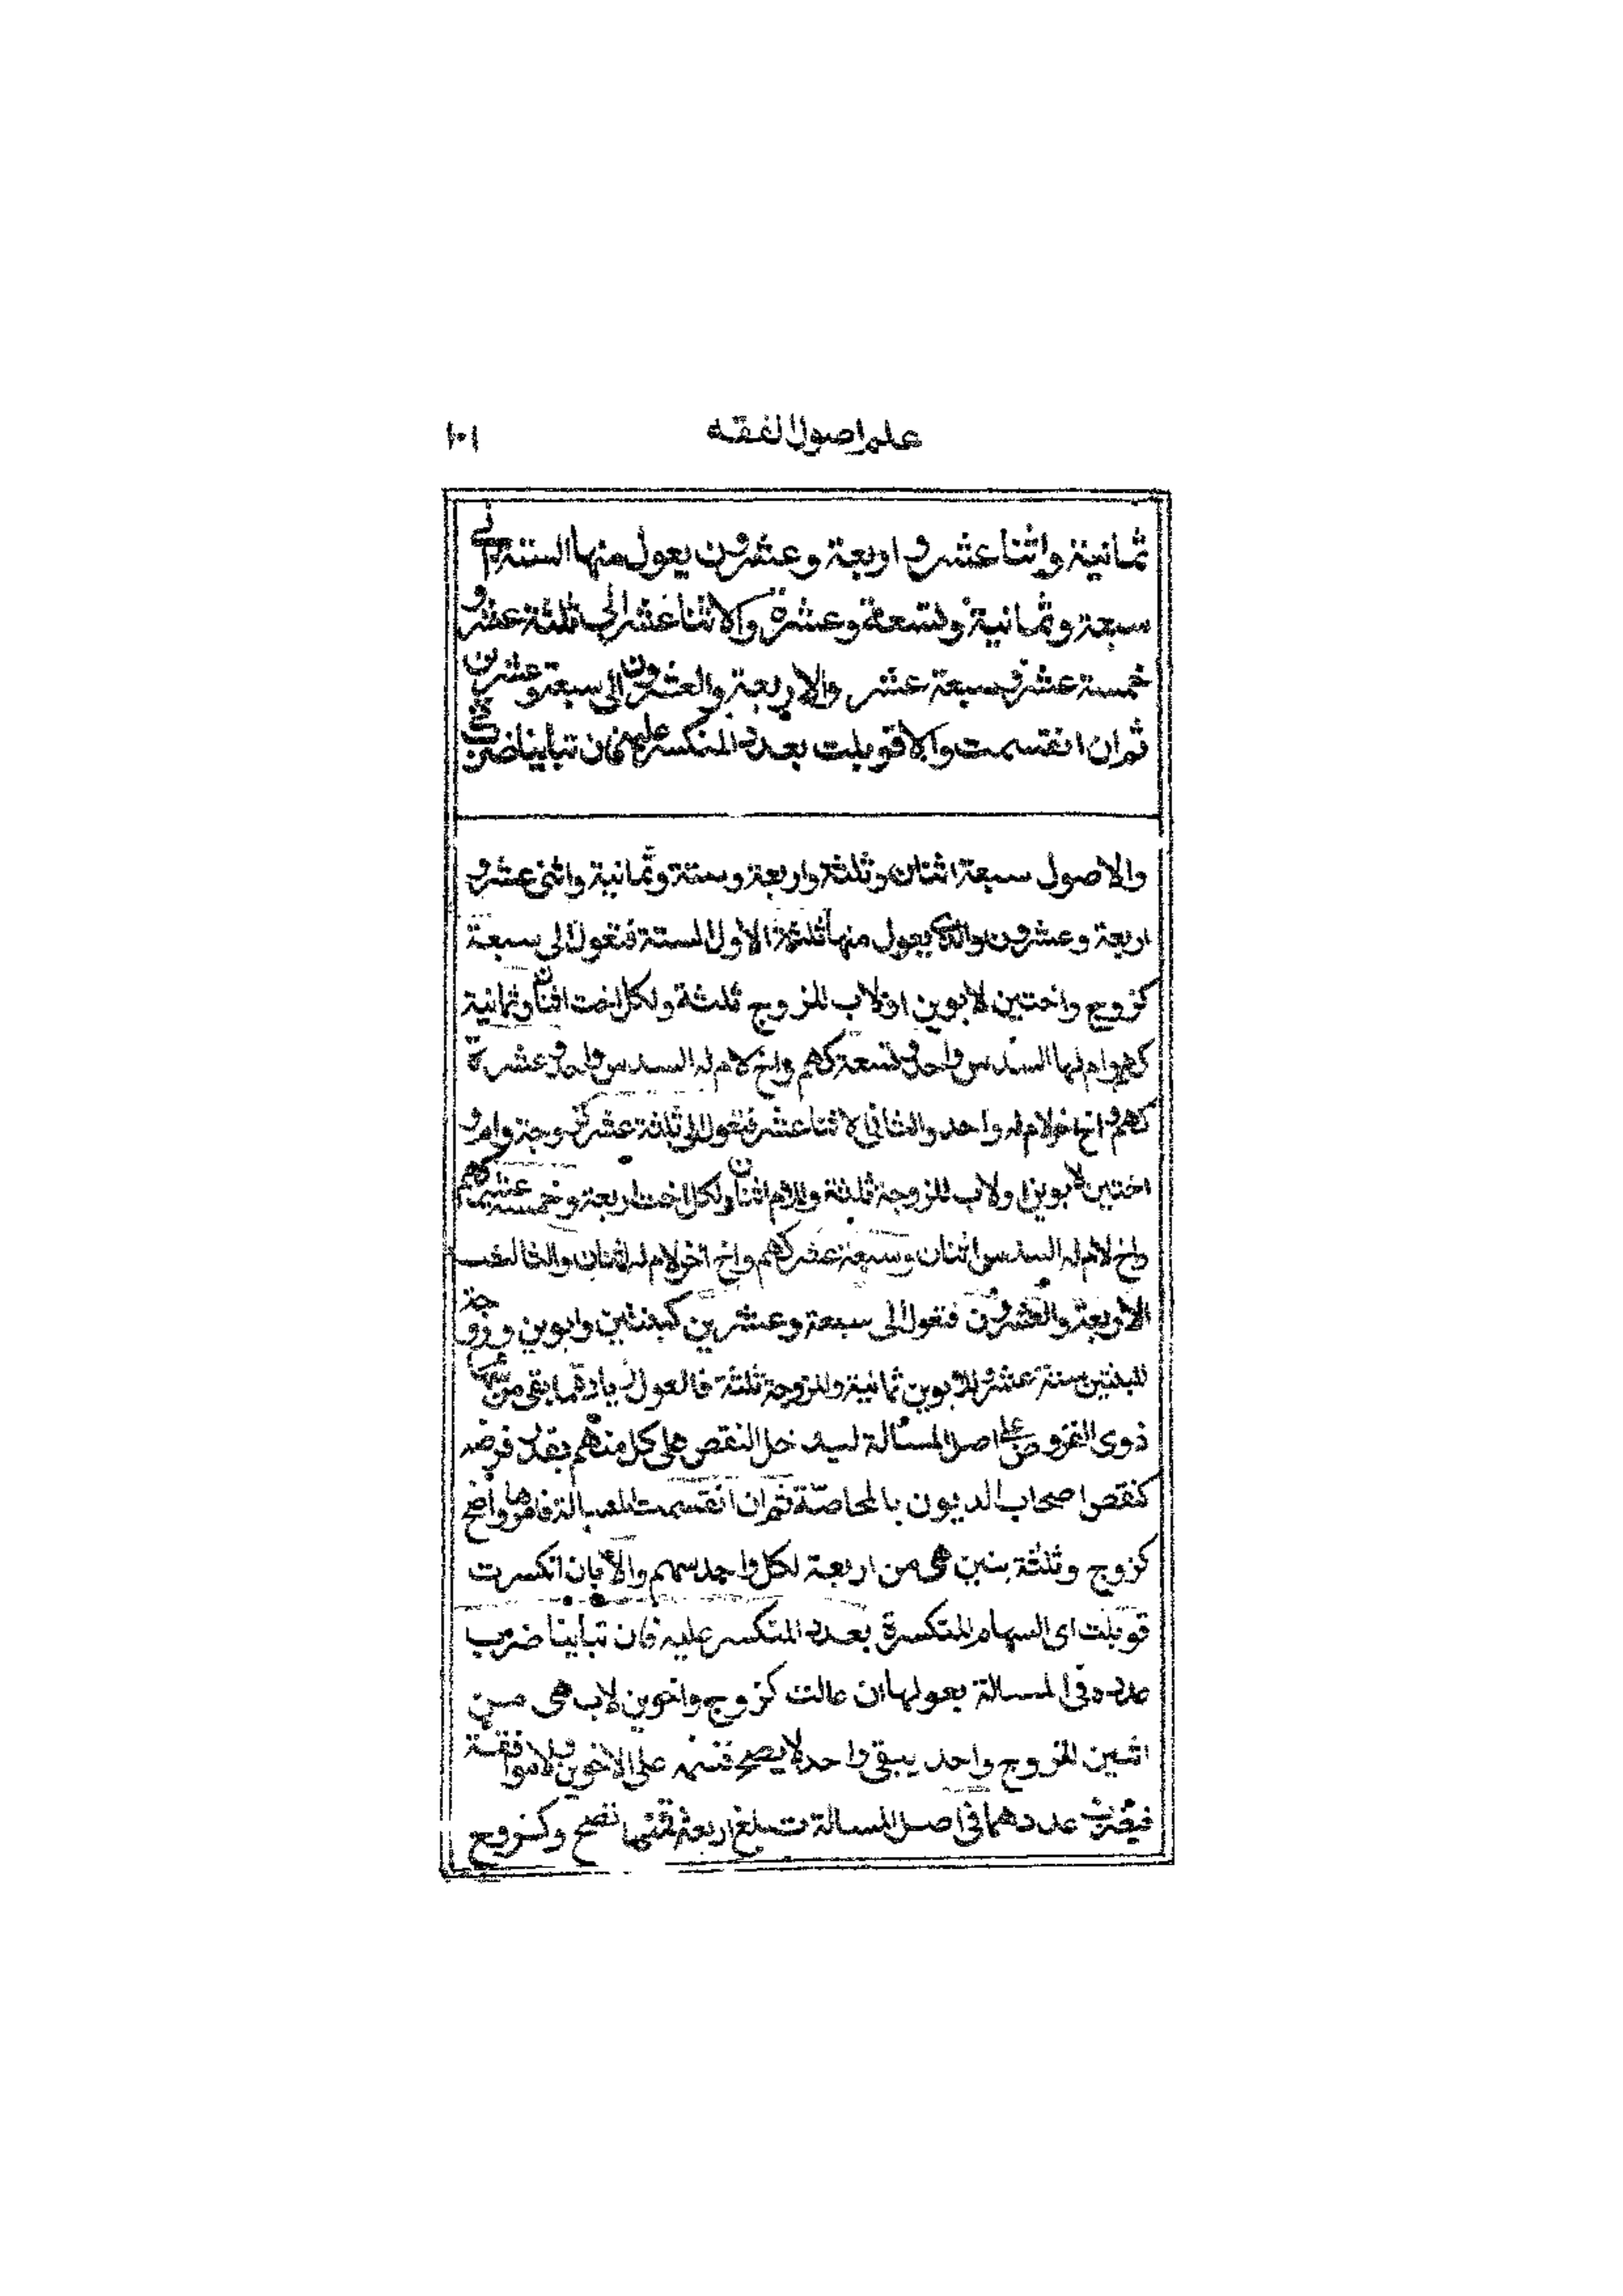 علم اصول الفقه ١٠١
ثمانية واثنا عشر و اربعة وعشرون يعول منها الستة الى
سبعة وثمانية وتسعة وعشرة والاثنا عشر الى ثلثة عشر و
خمسة عشر وسبعة عشر والاربعة والعشرون الى سبعة وعشرين
ثم ان انقسمت والا قوبلت بعدد المنكسر عليه فان تباينا ضرب
والاصول سبعة اثنان وثلثة واربعة وستة وثمانية واثنى عشر و
اربعة وعشرون والذى يعول منها ثلثة الاول الستة فتعول الى سبعة
كزوج واختين لابوين او لاب للزوج ثلثة ولكل اخت اثنان وثمانية
كهم وام لها السدس واحد وتسعة كهم واخ لام له السدس واحد وعشرة
كهم واخ اخر لام له واحد والثانى الاثنا عشر فتعول الى ثلثة عشر كزوجة وام و
اختين لابوين او لاب للزوجة ثلثة وللام اثنان ولكل اخت اربعة وخمسة عشر كهم
واخ لام له السدس اثنان وسبعة عشر كهم واخ اخر لام له اثنان والثالث
الاربعة والعشرون فتعول الى سبعة وعشرين كبنتين وابوين وزوجة
للبنتين ستة عشر وللابوين ثمانية وللزوجة ثلثة فالعول زيادة ما بقى من
ذوى الفروض على اصل المسألة ليدخل النقص على كل منهم بقدر فرضه
كنقص اصحاب الديون بالمحاصّة ثم ان انقسمت المسألة فامرها واضح
كزوج وثلثة بنين هى من اربعة لكل واحد سهم والا بان انكسرت
قوبلت اى السهام المنكسرة بعدد المنكسر عليه فان تباينا ضرب
عدده فى المسالة بعولها ان عالت كزوج واخوين لاب هى من
اثنين للزوج واحد يبقى واحد لا يصح قسمه على الاخوين ولا موافقة
فيضرب عددهما فى اصل المسالة تبلغ اربعة فمنها تصح وكزوج